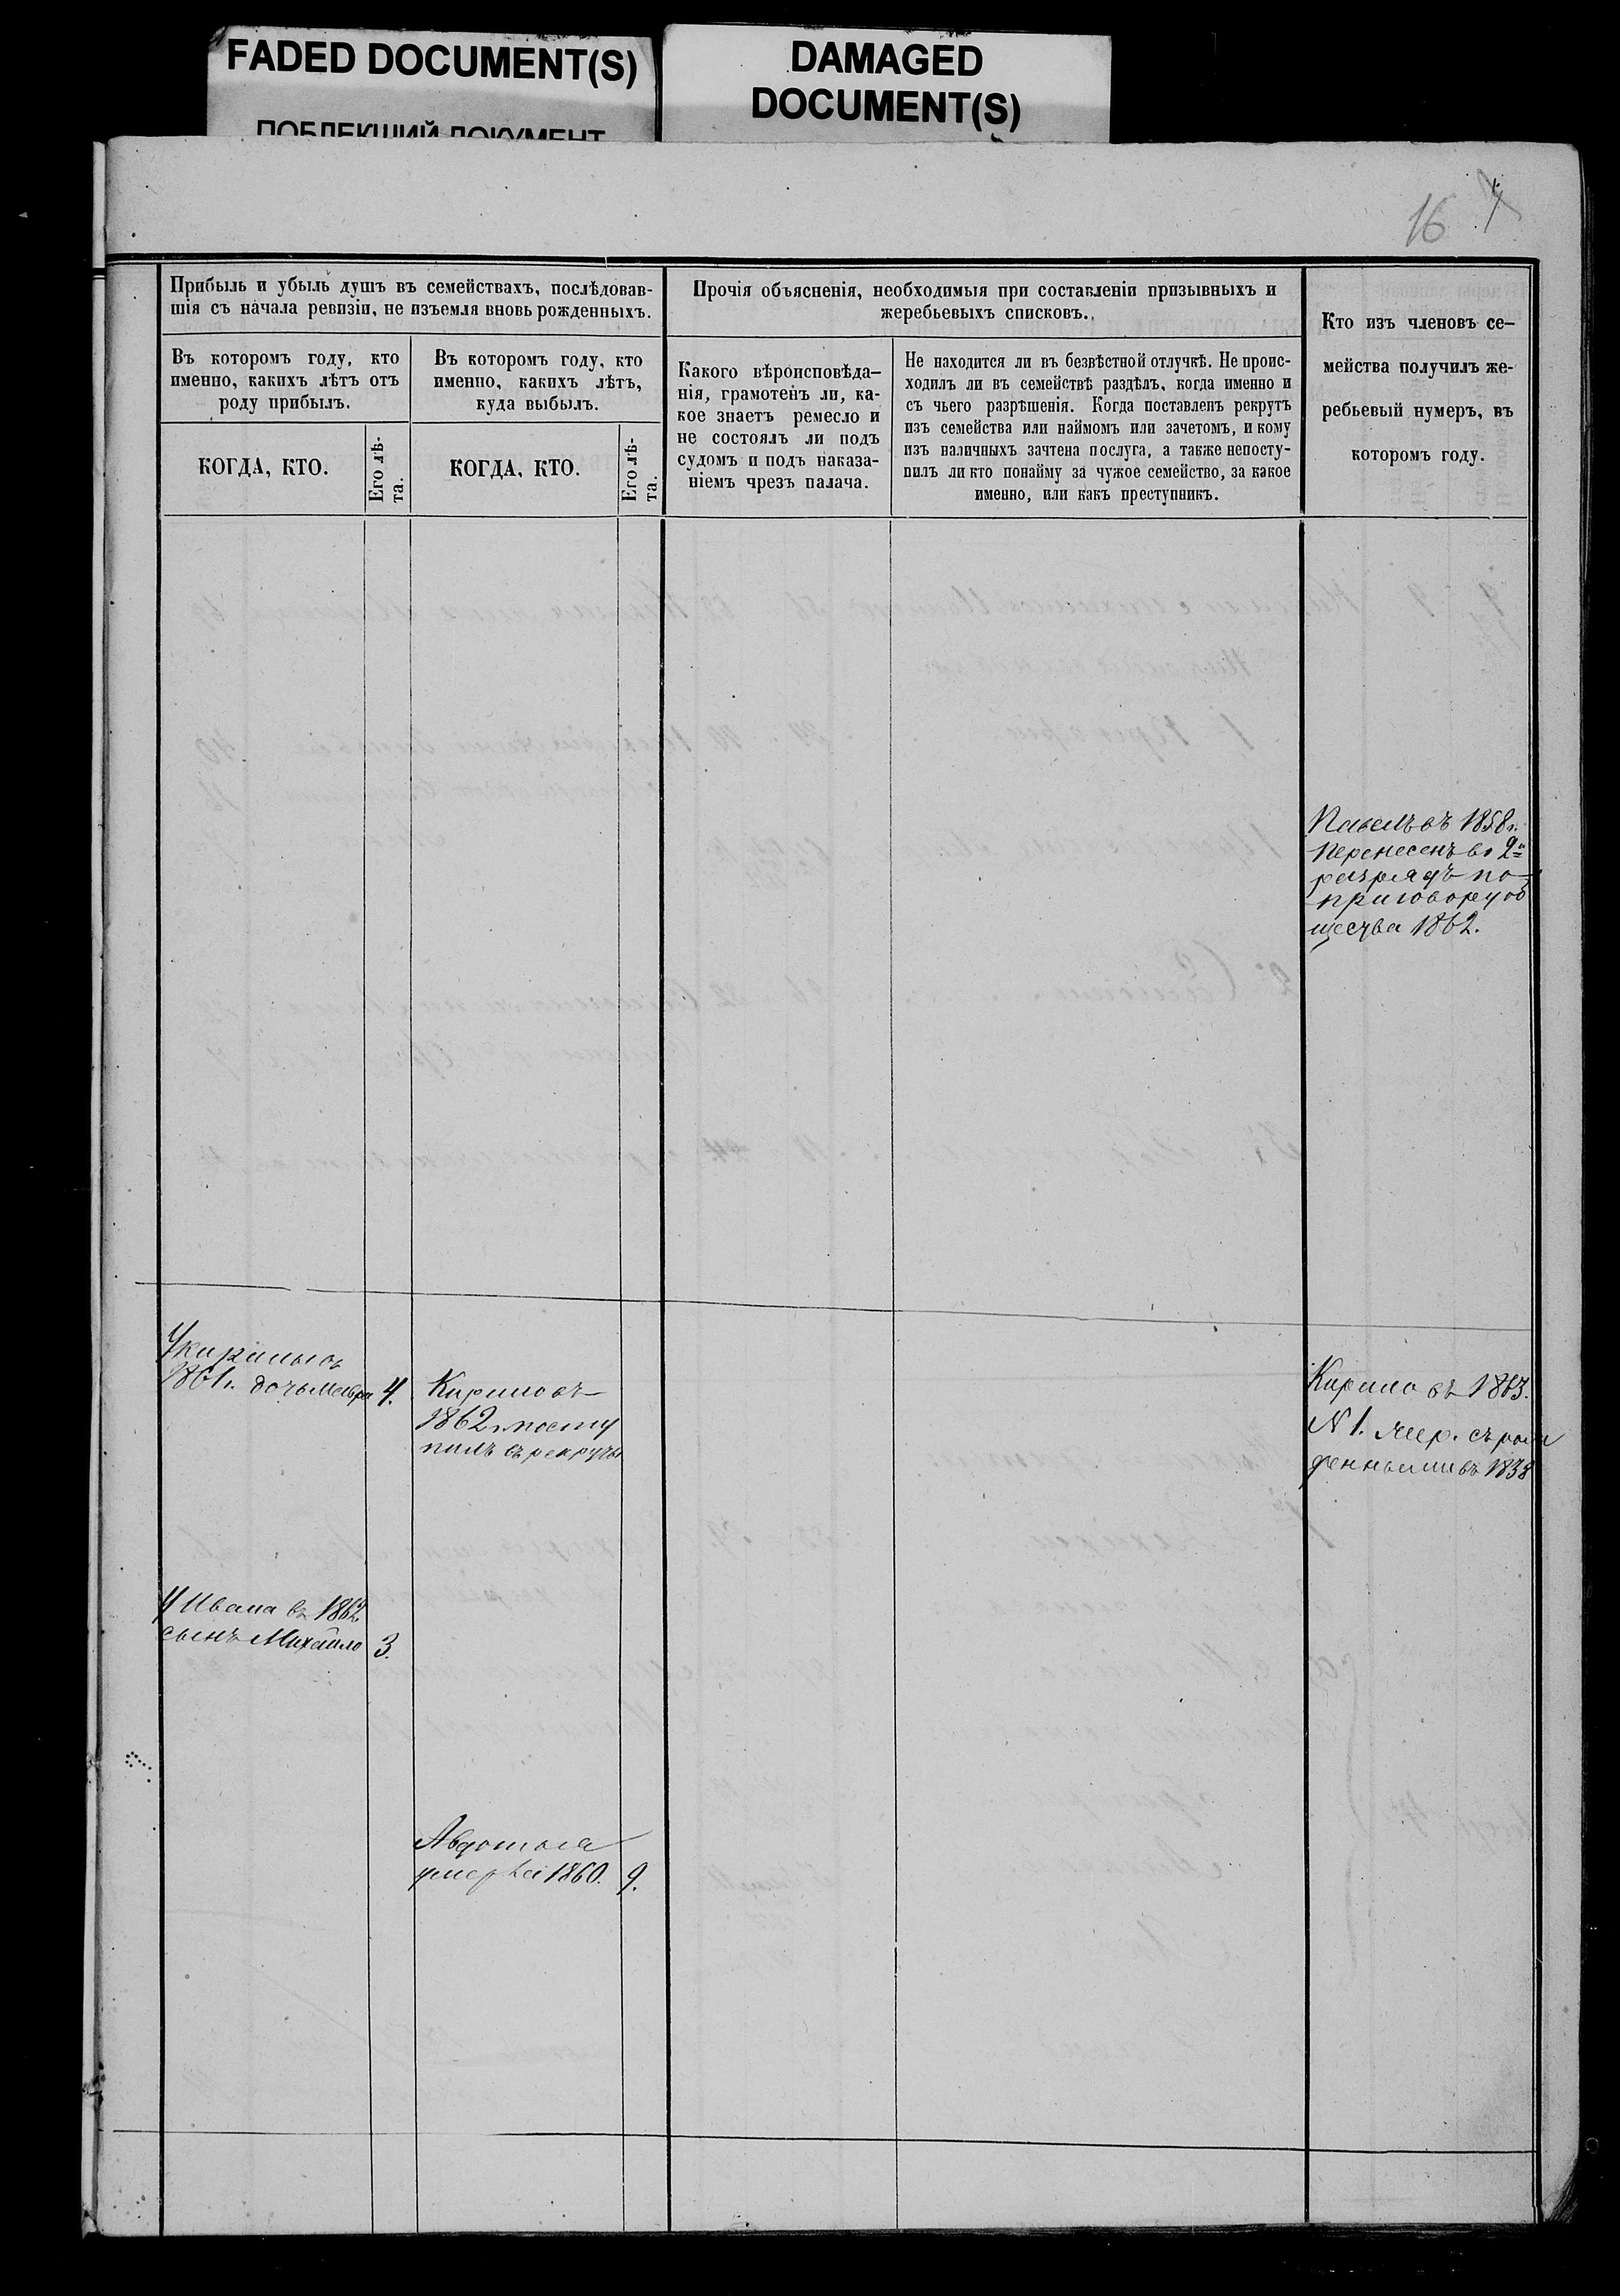 FADED DOCUMENT(S)
ПОБЛЕКШИЙ ДОКУМЕНТ
DAMAGED
DOCUMENT(S)
16
Прибыль и убыль душъ въ семействахъ, послѣдовав-
шія съ начала ревизіи, не изъемля вновь рожденныхъ.
Въ которомъ году, кто
именно, какихъ лѣтъ отъ
роду прибылъ.
КОГДА, КТО.
Его лѣ-
та.
Въ которомъ году, кто
именно, какихъ лѣтъ,
куда выбылъ.
КОГДА, КТО.
Его лѣ-
та.
Прочія объясненія, необходимыя при составленіи призывныхъ и
жеребьевыхъ списковъ.
Какого вѣроисповѣда-
нія, грамотенъ ли, ка-
кое знаетъ ремесло и
не состоялъ ли подъ
судомъ и подъ наказа-
ніемъ чрезъ палача.
Не находится ли въ безвѣстной отлучкѣ. Не проис-
ходилъ ли въ семействѣ раздѣлъ, когда именно и
съ чьего разрѣшенія. Когда поставленъ рекрутъ
изъ семейства или наймомъ или зачетомъ, и кому
изъ наличныхъ зачтена послуга, а также непосту-
пилъ ли кто понайму за чужое семейство, за какое
именно, или какъ преступникъ.
Кто изъ членовъ се-
мейства получилъ же-
ребьевый нумеръ, въ
которомъ году.
Павелъ въ 1858 г.
перенесенъ во 2й
разрядъ по
приговору об
щества 1862.
У Кирилы въ
1861 г. дочь Мавра 4.
Кирило въ
1862 г. посту
пилъ въ рекруты
Кирило въ 1863.
N 1. жер. съ рож
денными въ 1838
У Ивана въ 1862
сынъ Михайло 3.
Авдотья
умерла 1860. 9.